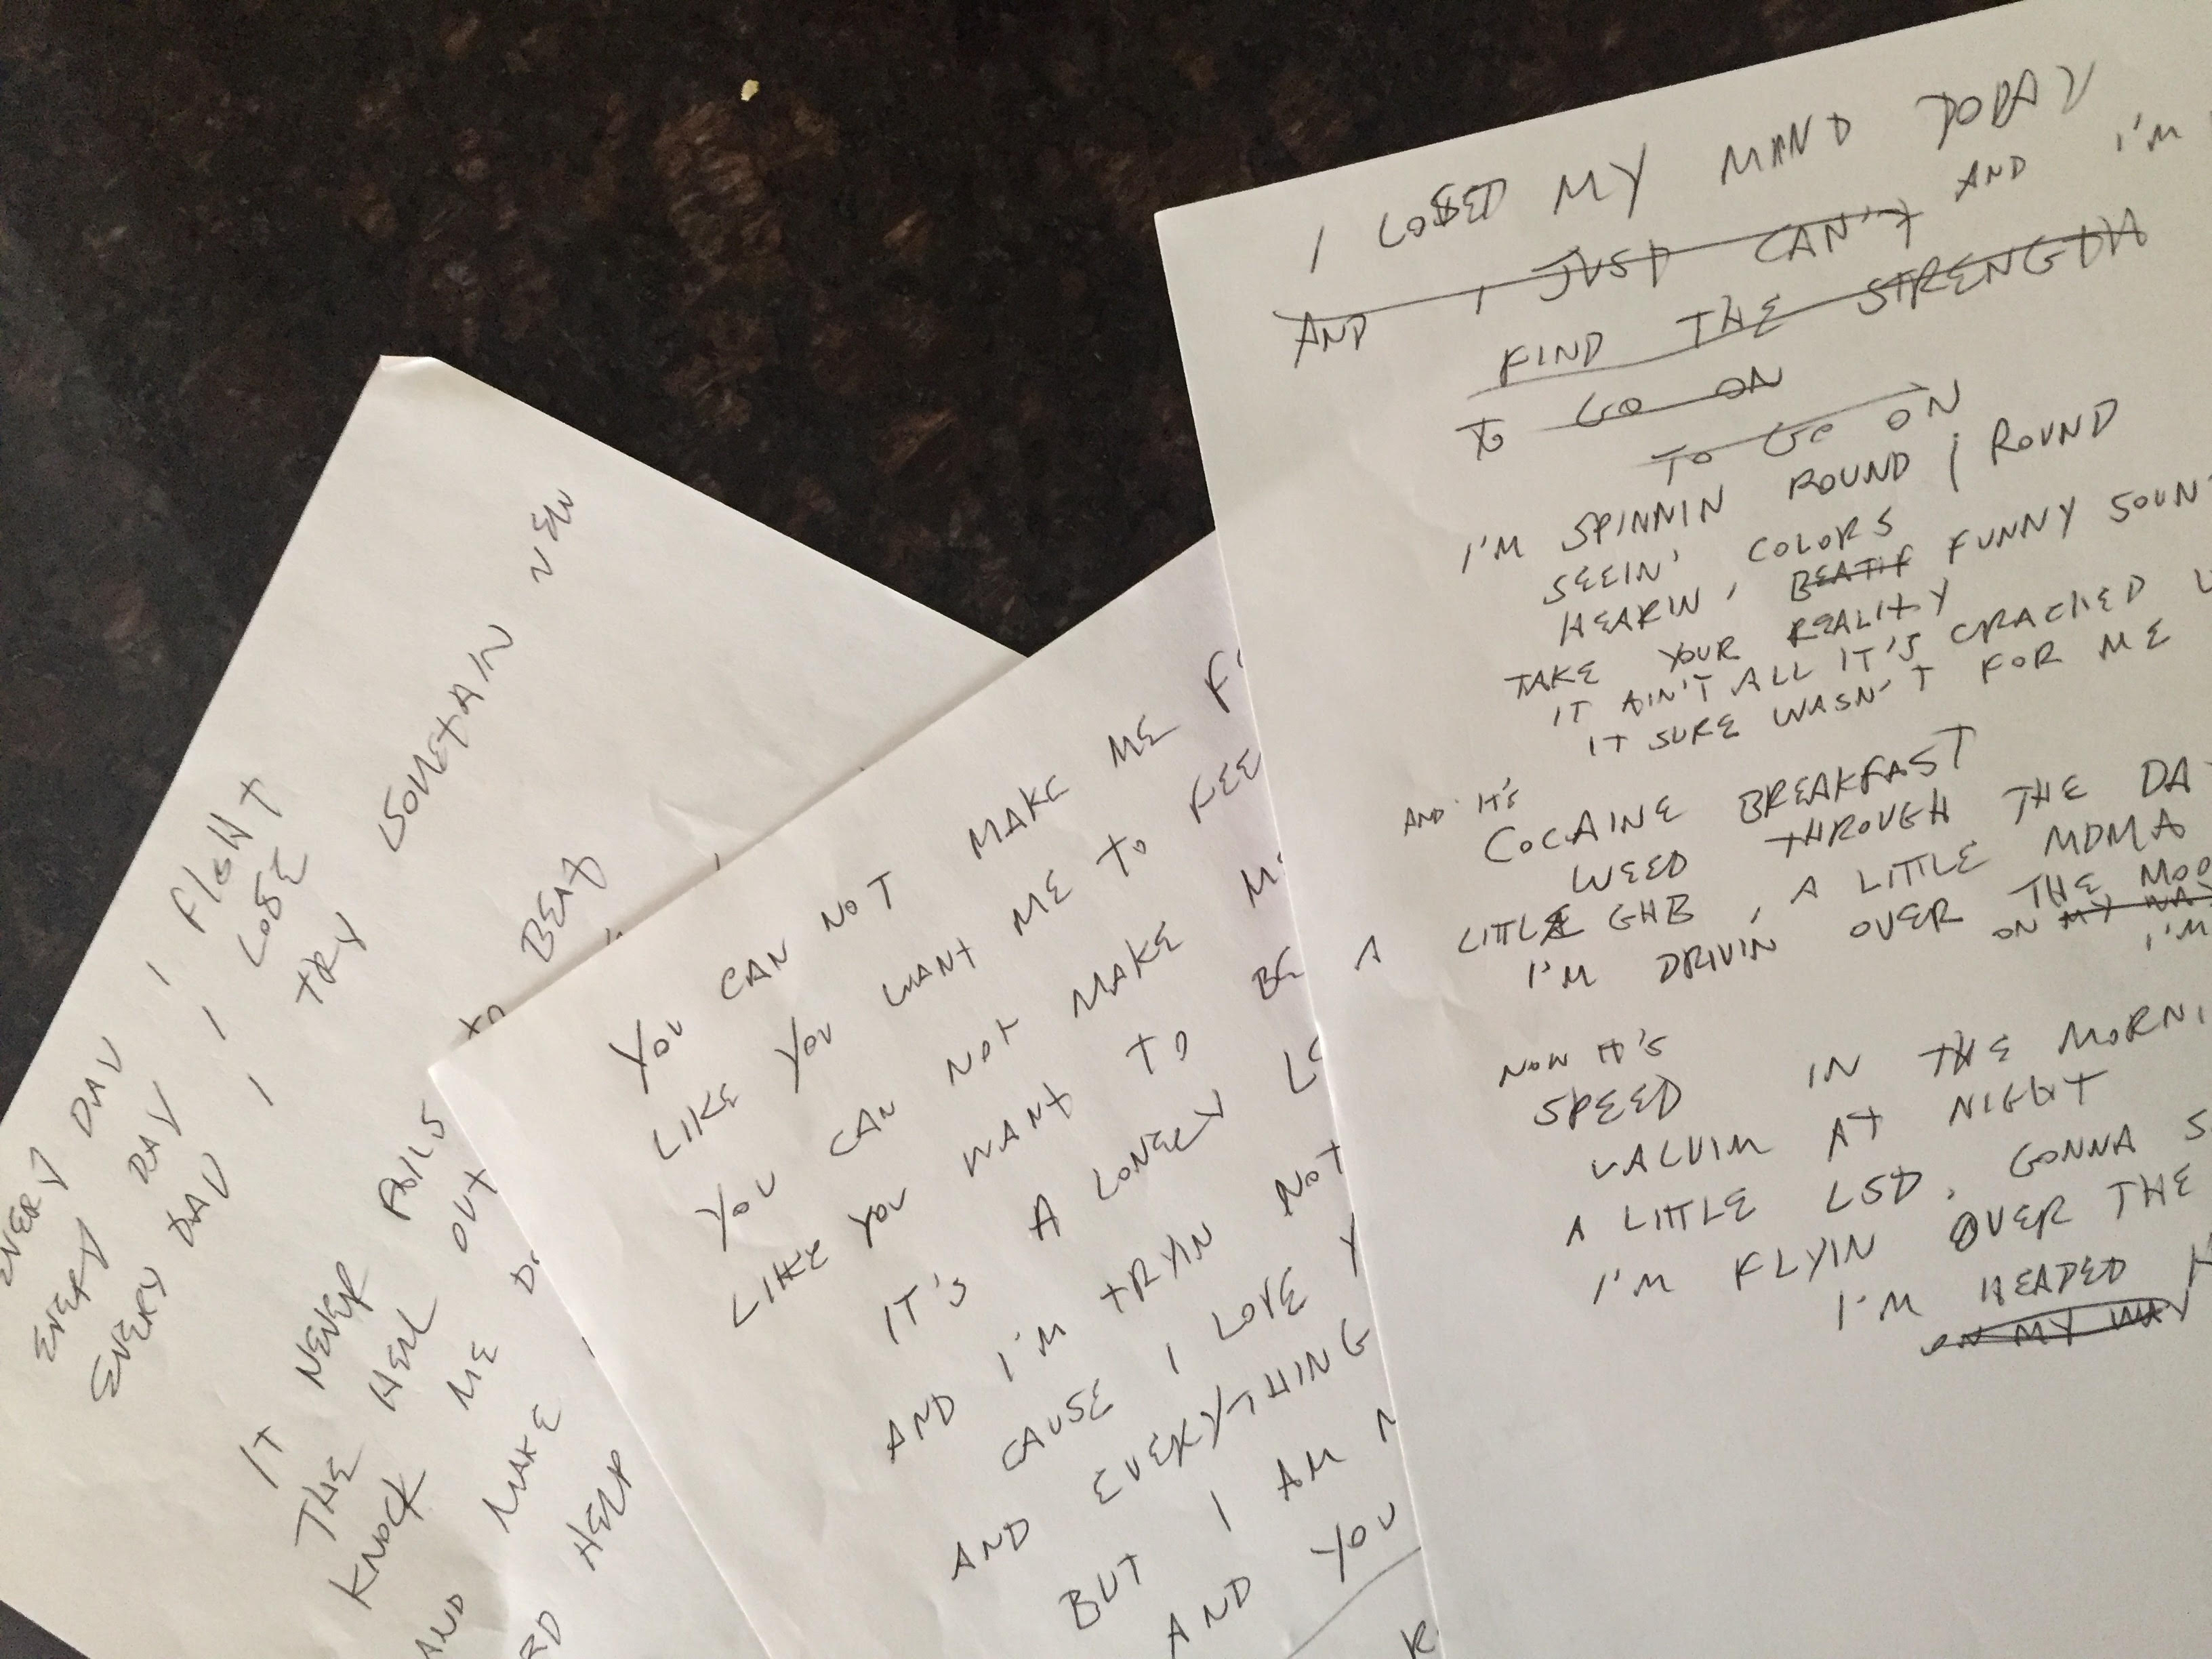 EVERY DAY I FIGHT
EVERY DAY I LOSE
EVERY DAY I TRY SOMETHIN NEW
IT NEVER FAILS TO BEAT
THE HELL OUT
KNOCK ME
AND MAKE
HELP
YOU CAN NOT MAKE ME
LIKE YOU WANT ME TO FEE
YOU CAN NOT MAKE M
LIKE YOU WANT TO BE
IT'S A LONELY
AND I'M TRYIN NOT
CAUSE I LOVE Y
AND EVERYTHING
BUT I AM
AND YOU
I LOSED MY MIND TODAY
AND I JUST CAN'T AND I'M
FIND THE STRENGTH
TO GO ON
TO GO ON
I'M SPINNIN ROUND & ROUND
SEEIN' COLORS
HEARIN' BEATIF FUNNY SOUN
TAKE YOUR REALITY
IT AIN'T ALL IT'S CRACKED
IT SURE WASN'T FOR ME
AND IT'S
COCAINE BREAKFAST
WEED THROUGH THE DA
A LITTLE GHB, A LITTLE MDMA
I'M DRIVIN OVER THE MOO
ON MY WA
I'M
NOW IT'S
SPEED IN THE MORNI
VALUIM AT NIGHT
A LITTLE LSD, GONNA S
I'M FLYIN OVER THE
I'M HEADED
ON MY WAY